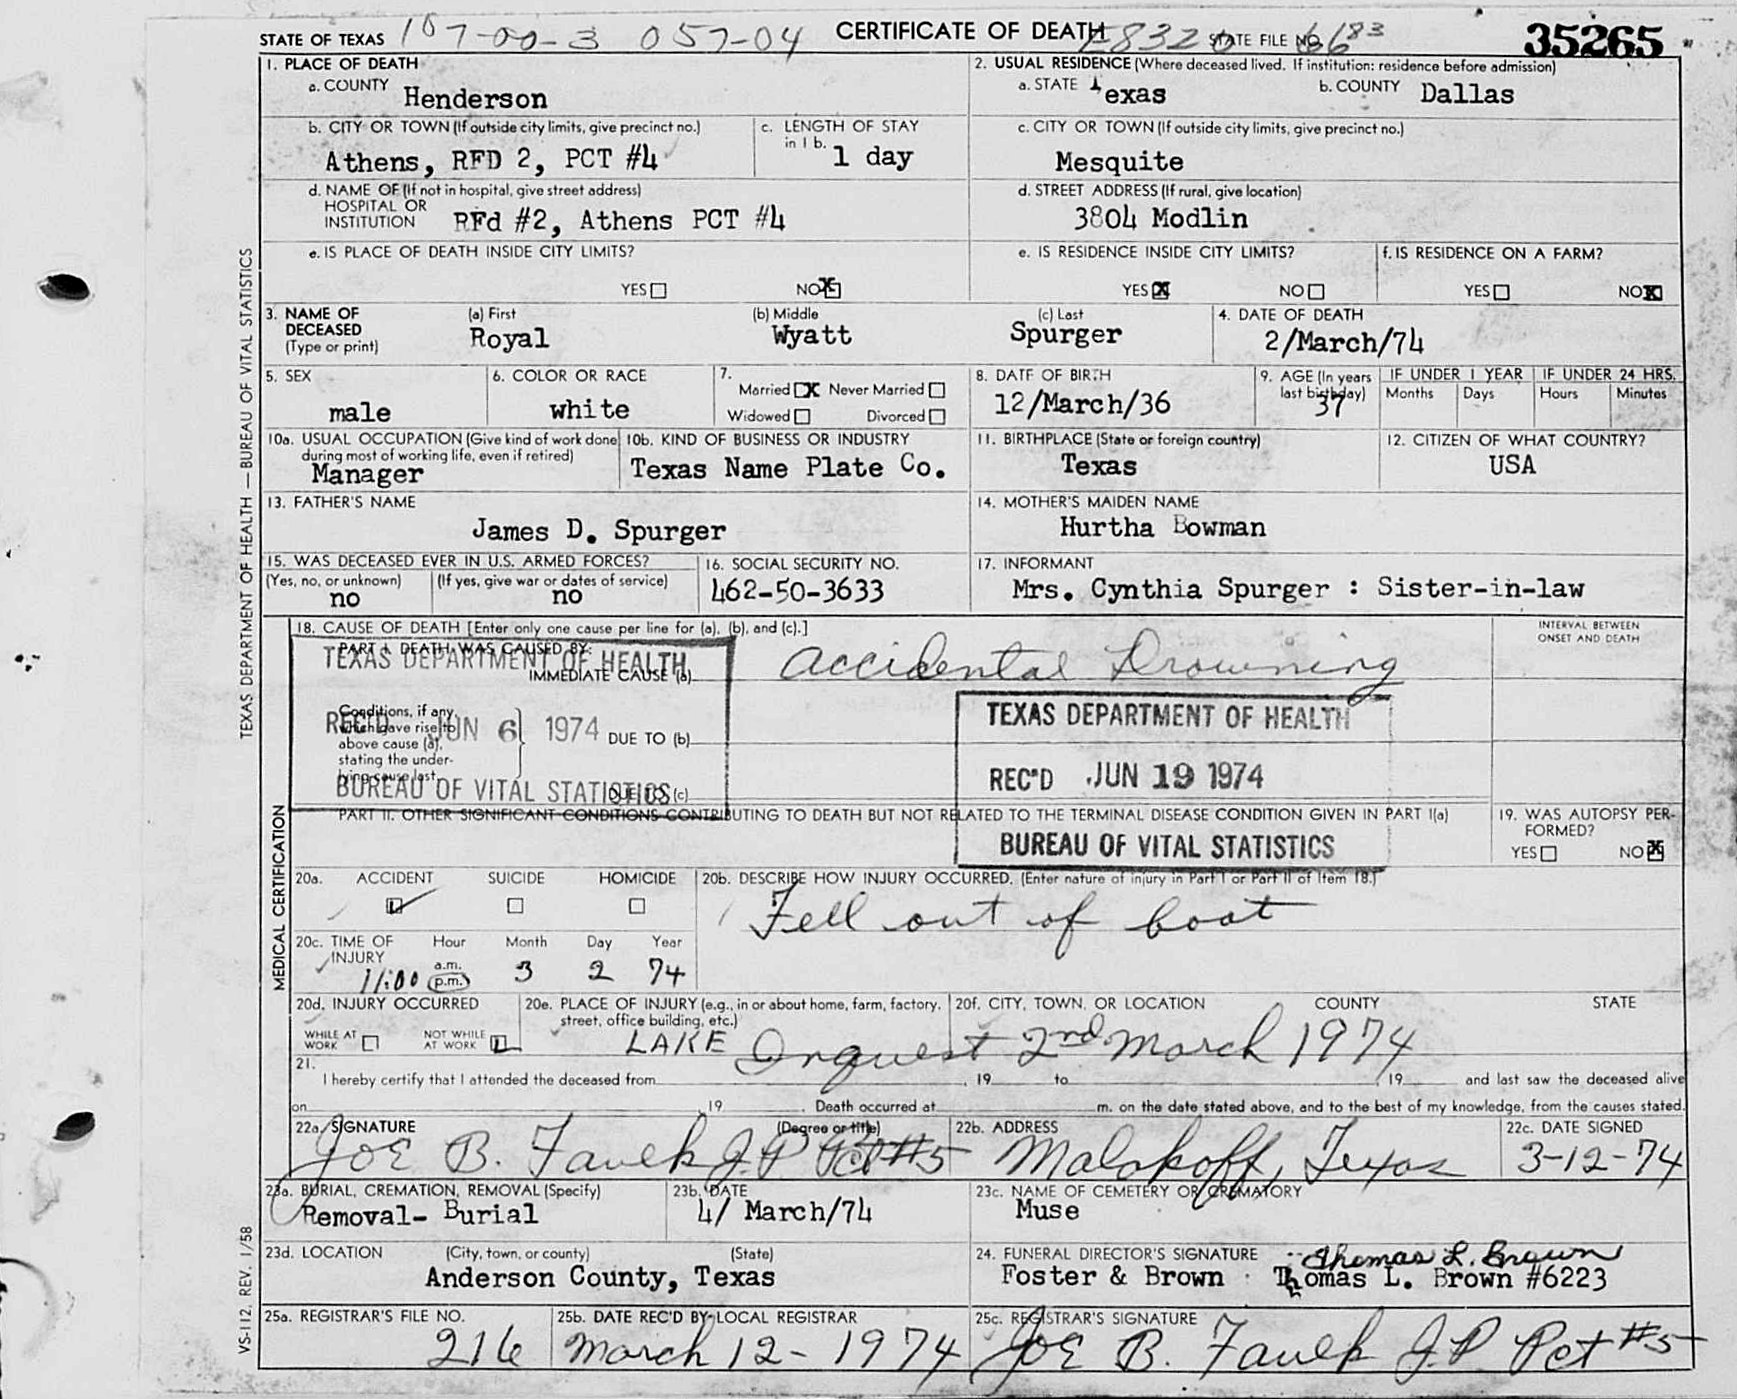 STATE OF TEXAS 107-00-3 057-04 CERTIFICATE OF DEATH STATE FILE NO. 35265
1. PLACE OF DEATH
a. COUNTY Henderson
2. USUAL RESIDENCE (Where deceased lived. If institution: residence before admission)
a. STATE Texas b. COUNTY Dallas
b. CITY OR TOWN (If outside city limits, give precinct no.)
Athens, RFD 2, PCT #4
c. LENGTH OF STAY in 1 b.
1 day
c. CITY OR TOWN (If outside city limits, give precinct no.)
Mesquite
d. NAME OF (If not in hospital, give street address)
HOSPITAL OR
INSTITUTION RFd #2, Athens PCT #4
d. STREET ADDRESS (If rural, give location)
3804 Modlin
e. IS PLACE OF DEATH INSIDE CITY LIMITS?
YES NO X
e. IS RESIDENCE INSIDE CITY LIMITS?
YES X NO
f. IS RESIDENCE ON A FARM?
YES NO X
3. NAME OF DECEASED (Type or print)
(a) First Royal
(b) Middle Wyatt
(c) Last Spurger
4. DATE OF DEATH
2/March/74
5. SEX
male
6. COLOR OR RACE
white
7.
Married X Never Married
Widowed Divorced
8. DATE OF BIRTH
12/March/36
9. AGE (In years last birthday)
37
IF UNDER 1 YEAR
Months Days
IF UNDER 24 HRS.
Hours Minutes
10a. USUAL OCCUPATION (Give kind of work done during most of working life, even if retired)
Manager
10b. KIND OF BUSINESS OR INDUSTRY
Texas Name Plate Co.
11. BIRTHPLACE (State or foreign country)
Texas
12. CITIZEN OF WHAT COUNTRY?
USA
13. FATHER'S NAME
James D. Spurger
14. MOTHER'S MAIDEN NAME
Hurtha Bowman
15. WAS DECEASED EVER IN U.S. ARMED FORCES?
(Yes, no, or unknown) (If yes, give war or dates of service)
no no
16. SOCIAL SECURITY NO.
462-50-3633
17. INFORMANT
Mrs. Cynthia Spurger : Sister-in-law
18. CAUSE OF DEATH [Enter only one cause per line for (a), (b), and (c).]
PART I. DEATH WAS CAUSED BY:
IMMEDIATE CAUSE (a) Accidental Drowning
INTERVAL BETWEEN ONSET AND DEATH
TEXAS DEPARTMENT OF HEALTH
REC'D JUN 6 1974
BUREAU OF VITAL STATISTICS
Conditions, if any,
which gave rise to
above cause (a),
stating the under-
lying cause last.
DUE TO (b)
DUE TO (c)
TEXAS DEPARTMENT OF HEALTH
REC'D JUN 19 1974
BUREAU OF VITAL STATISTICS
PART II. OTHER SIGNIFICANT CONDITIONS CONTRIBUTING TO DEATH BUT NOT RELATED TO THE TERMINAL DISEASE CONDITION GIVEN IN PART I(a)
19. WAS AUTOPSY PERFORMED?
YES NO X
20a. ACCIDENT SUICIDE HOMICIDE
20b. DESCRIBE HOW INJURY OCCURRED. (Enter nature of injury in Part I or Part II of Item 18.)
Fell out of boat
20c. TIME OF INJURY Hour Month Day Year
11:00 a.m. p.m. 3 2 74
20d. INJURY OCCURRED
WHILE AT WORK NOT WHILE AT WORK
20e. PLACE OF INJURY (e.g., in or about home, farm, factory, street, office building, etc.)
LAKE
20f. CITY, TOWN, OR LOCATION COUNTY STATE
Inquest 2nd March 1974
21.
I hereby certify that I attended the deceased from , 19 to , 19 and last saw the deceased alive
on , 19 . Death occurred at m. on the date stated above, and to the best of my knowledge, from the causes stated.
22a. SIGNATURE (Degree or title)
Joe B. Faulk J.P. Pct #5
22b. ADDRESS
Malakoff, Texas
22c. DATE SIGNED
3-12-74
23a. BURIAL, CREMATION, REMOVAL (Specify)
Removal- Burial
23b. DATE
4/ March/74
23c. NAME OF CEMETERY OR CREMATORY
Muse
23d. LOCATION (City, town, or county) (State)
Anderson County, Texas
24. FUNERAL DIRECTOR'S SIGNATURE Thomas L. Brown
Foster & Brown Thomas L. Brown #6223
25a. REGISTRAR'S FILE NO.
216
25b. DATE REC'D BY LOCAL REGISTRAR
March 12- 1974
25c. REGISTRAR'S SIGNATURE
Joe B. Faulk J.P. Pct #5
TEXAS DEPARTMENT OF HEALTH — BUREAU OF VITAL STATISTICS
MEDICAL CERTIFICATION
VS-112, REV. 1/58